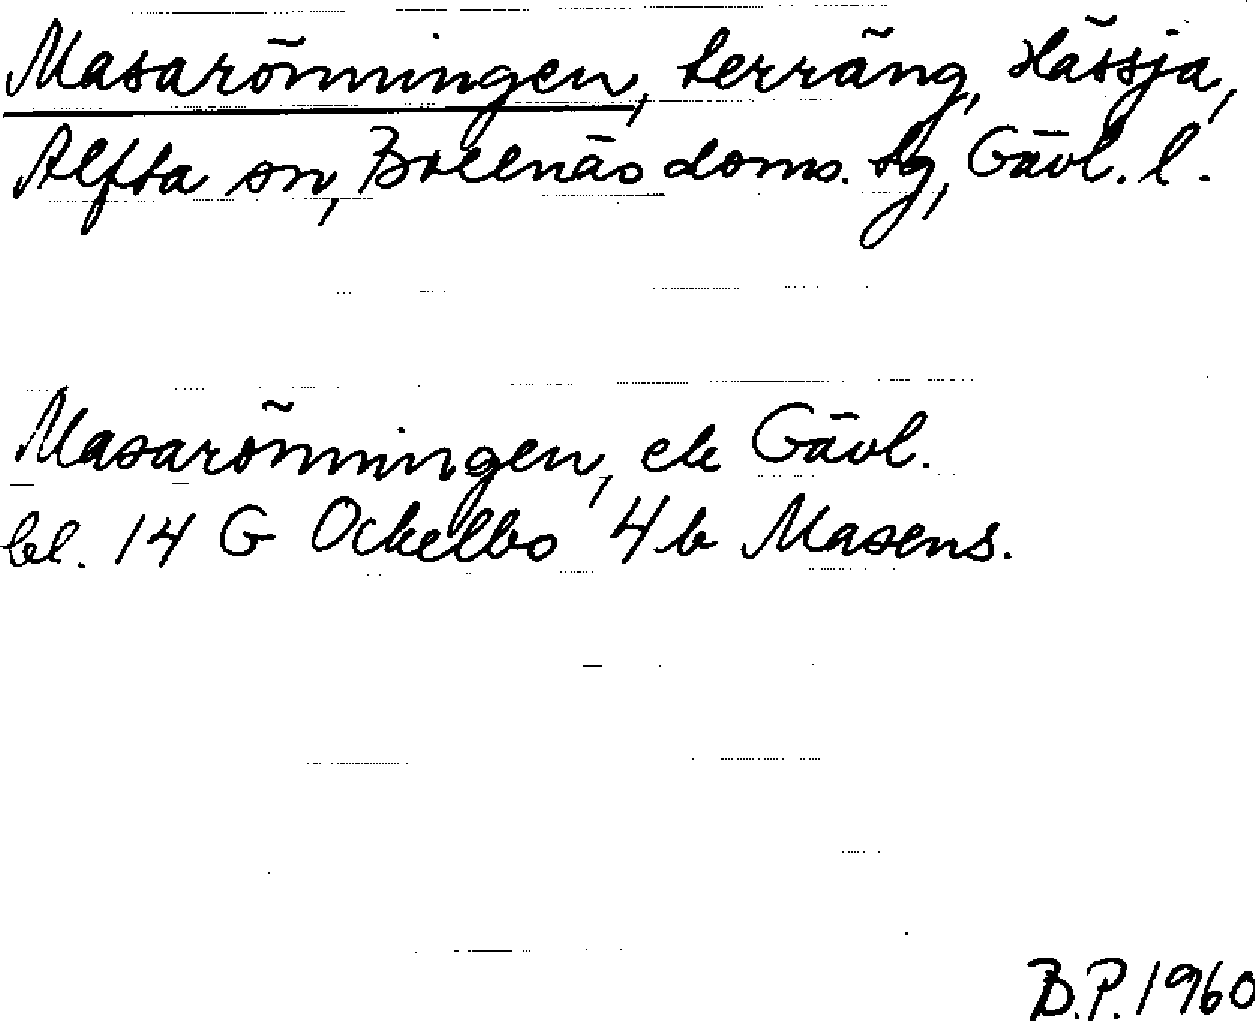 Masarönningen, terräng, Hässja,
Alfta sn, Bollnäs doms. tg, Gävl. l.
Masarönningen, ek Gävl.
bl. 14 G Ockelbo 4b Masens.
B.P. 1960